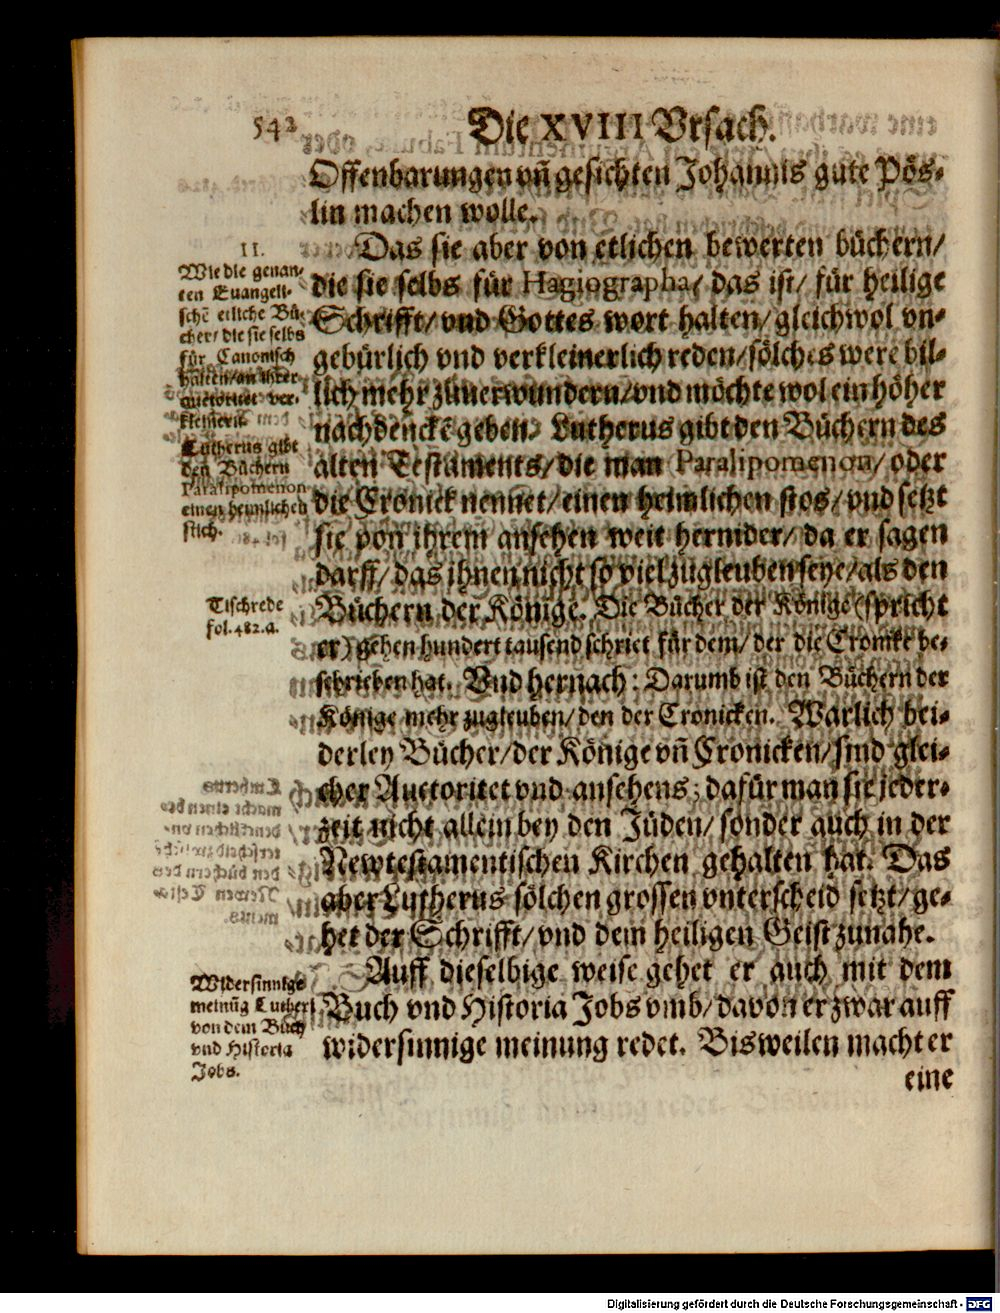 542
Die XVIII Vrsach.
Offenbarungen vñ gesichten Johannis gute Pös-
lin machen wolle.
Das sie aber von etlichen bewerten büchern/
die sie selbs für Hagiographa/ das ist/ für heilige
Schrifft/ vnd Gottes wort halten/ gleichwol vn-
gebürlich vnd verkleinerlich reden/ sölches were bil-
lich mehr zuuerwundern/ vnd möchte wol ein höher
nachdenckē geben. Lutherus gibt den Büchern des
alten Testaments/ die man Paralipomenon/ oder
die Cronick nennet/ einen heimlichen stos/ vnd setzt
sie von ihrem ansehen weit hernider/ da er sagen
darff/ das ihnen nicht so viel zugleuben seye/ als den
Büchern der Könige. Die Bücher der Könige (spricht
er) gehen hundert tausend schriet für dem/ der die Cronike be-
schrieben hat. Vnd hernach: Darumb ist den Büchern der
Könige mehr zugleuben/ den der Cronicken. Warlich bei-
derley Bücher/ der Könige vñ Cronicken/ sind glei-
cher Auctoritet vnd ansehens; dafür man sie jeder-
zeit nicht allein bey den Jüden/ sonder auch in der
Newtestamentischen Kirchen gehalten hat. Das
aber Lutherus sölchen grossen vnterscheid setzt/ ge-
het der Schrifft/ vnd dem heiligen Geist zunahe.
Auff dieselbige weise gehet er auch mit dem
Buch vnd Historia Jobs vmb/ davon er zwar auff
widersinnige meinung redet. Bisweilen macht er
eine
11.
Wie die genan-
ten Euangeli-
schē etliche Bü-
cher/ die sie selbs
für Canonisch
halten/ an ihrer
auctoritet ver-
kleinern.
Lutherus gibt
den Büchern
Paralipomenon
einen heimlichen
stich.
Tischrede
fol. 482. a.
Widersinnige
meinũg Lutheri
von dem Buch
vnd Historia
Jobs.
Digitalisierung gefördert durch die Deutsche Forschungsgemeinschaft - DFG